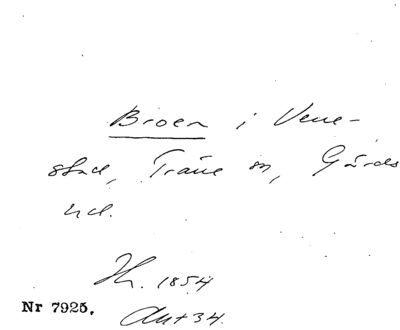 Broen i Vene-
stad, Träne sn, Gärds
hd.
Hh. 1854
Nr 7925.
Ant 34.